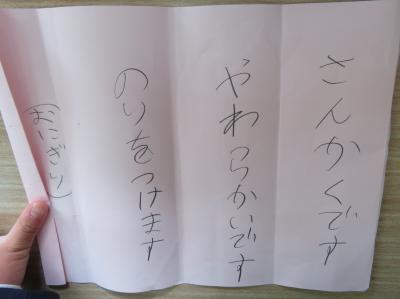 さんかくです
やわらかいです
のりをつけます
(おにぎり)